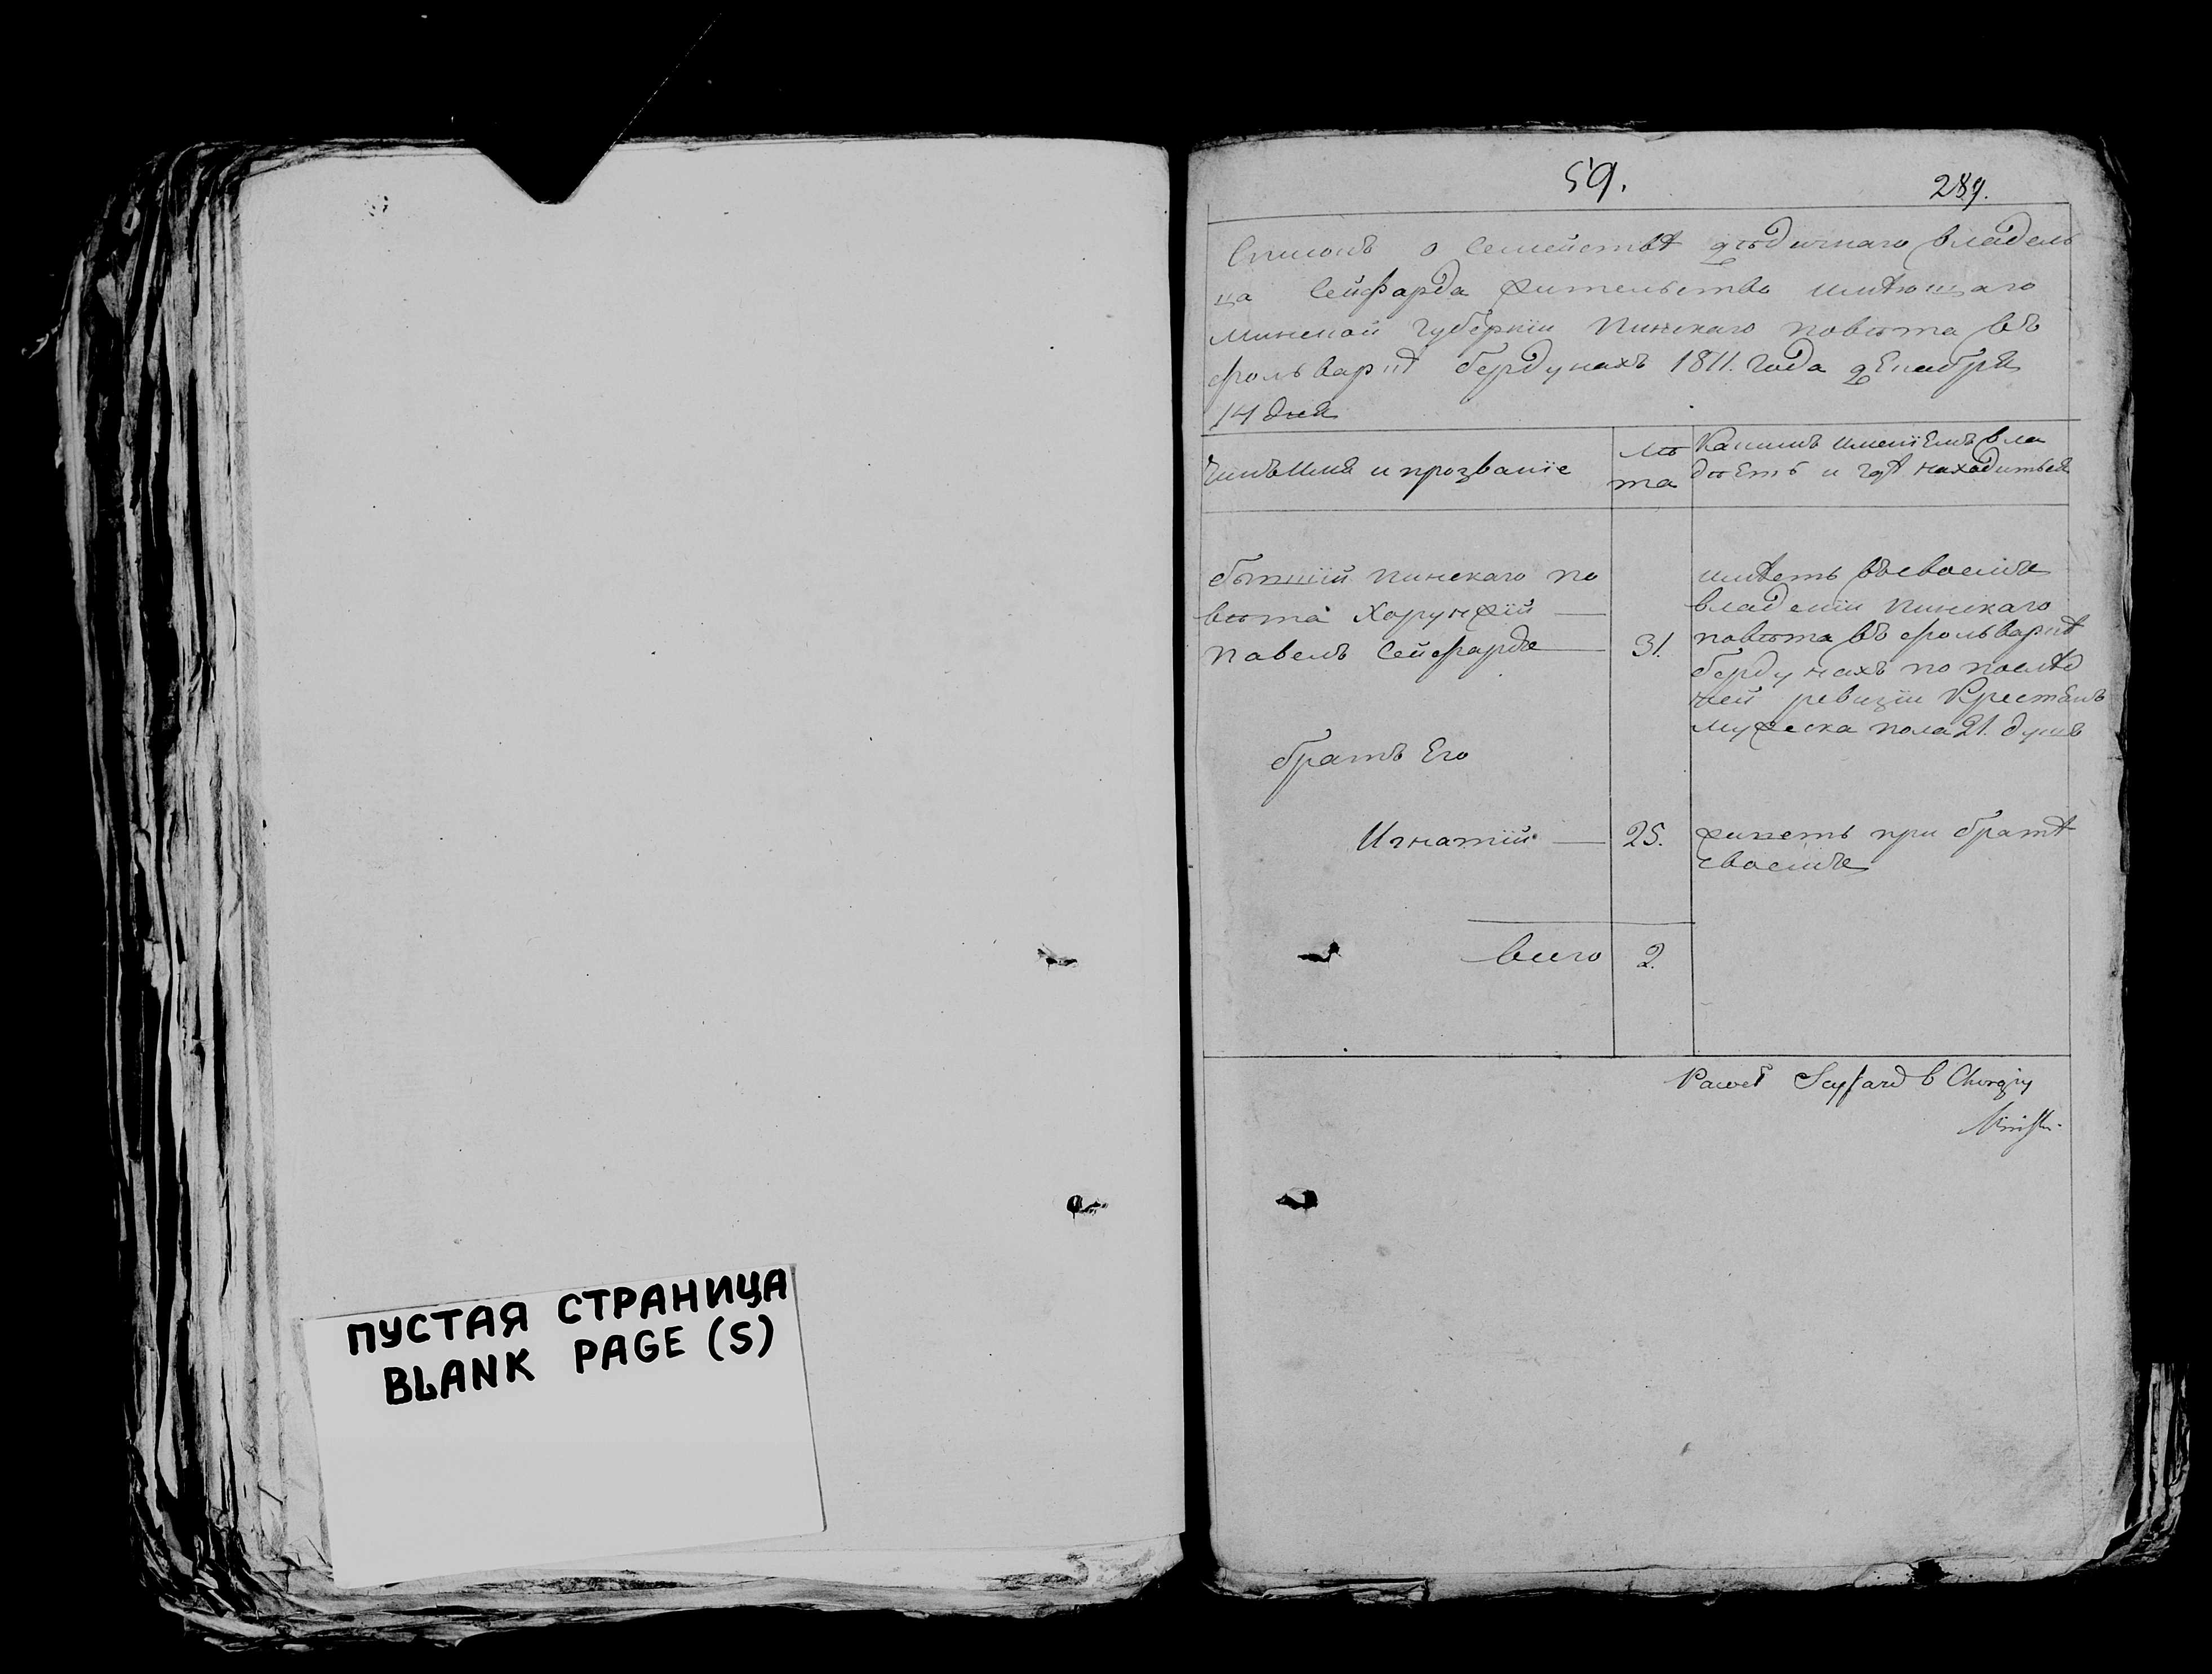 ПУСТАЯ СТРАНИЦА
BLANK PAGE (S)
59.
289.
Списокъ о Семействѣ дѣдичнаго владель
ца Сейфарда жительство имѣющаго
минской губерніи Пинскаго повѣта въ
фольваркѣ бердунахъ 1811. года декабря
14 дня
Чинъ Имя и прозваніе
лѣ
та
Какимъ имениемъ вла
дѣетъ и гдѣ находиться
бывшій пинскаго по
вѣта Хорунжій —
Павелъ Сейфардъ —
31.
имѣетъ въ своемъ
владении пинскаго
повѣта въ фольваркѣ
бердунахъ по послѣд
ней ревизіи Крестьянъ
мужеска пола 21. душъ
братъ Его
Игнатій —
25.
живетъ при братѣ
своемъ
всего
2.
Paweł Seyffard b Chorąży